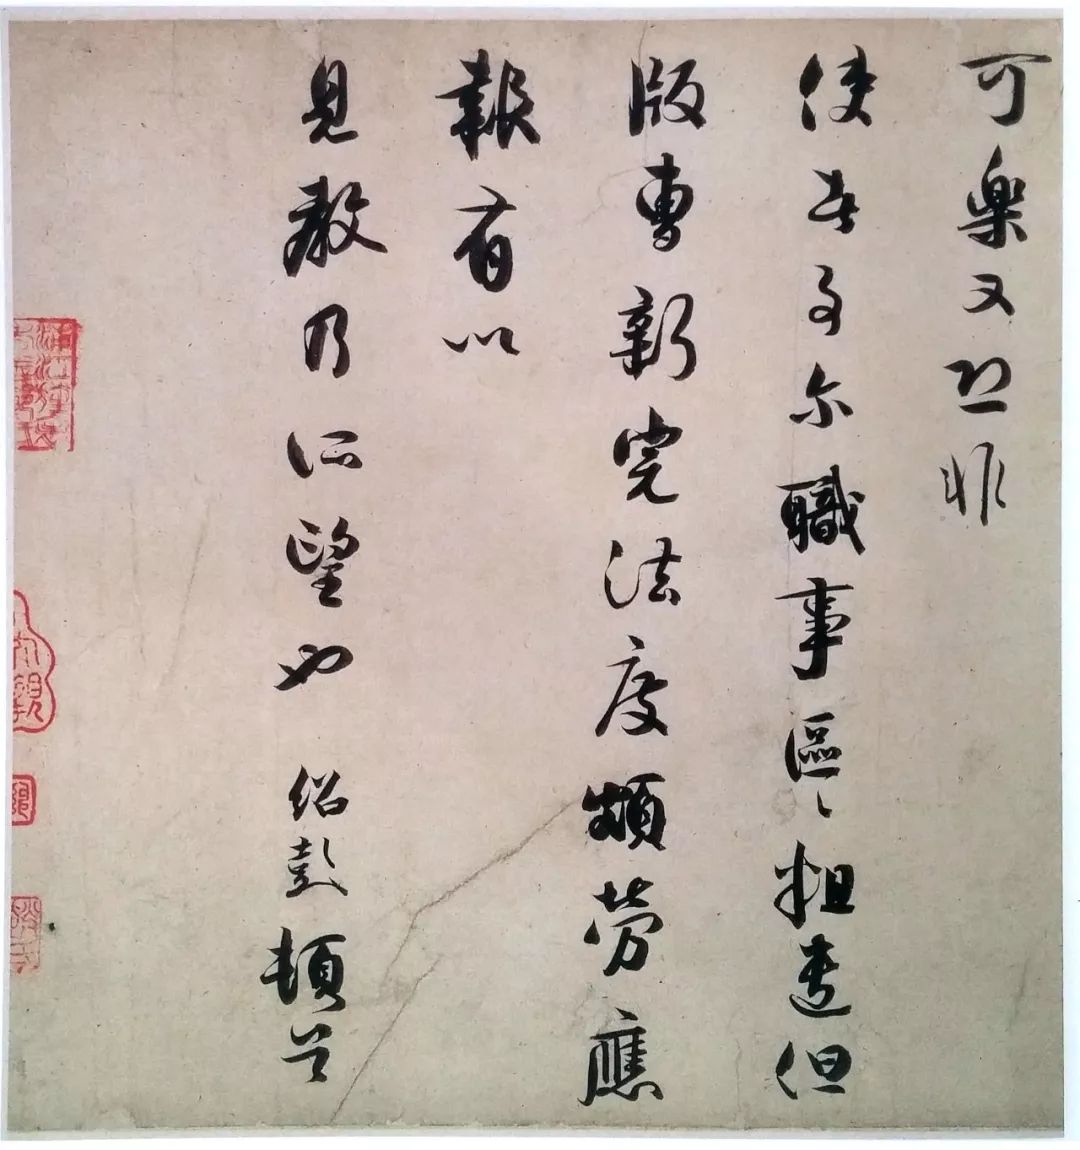 可樂又恐非
使者可尔職事區〻粗遣但
版曹新完法度頗勞應
報有以
見教乃所望也 紹彭頓首